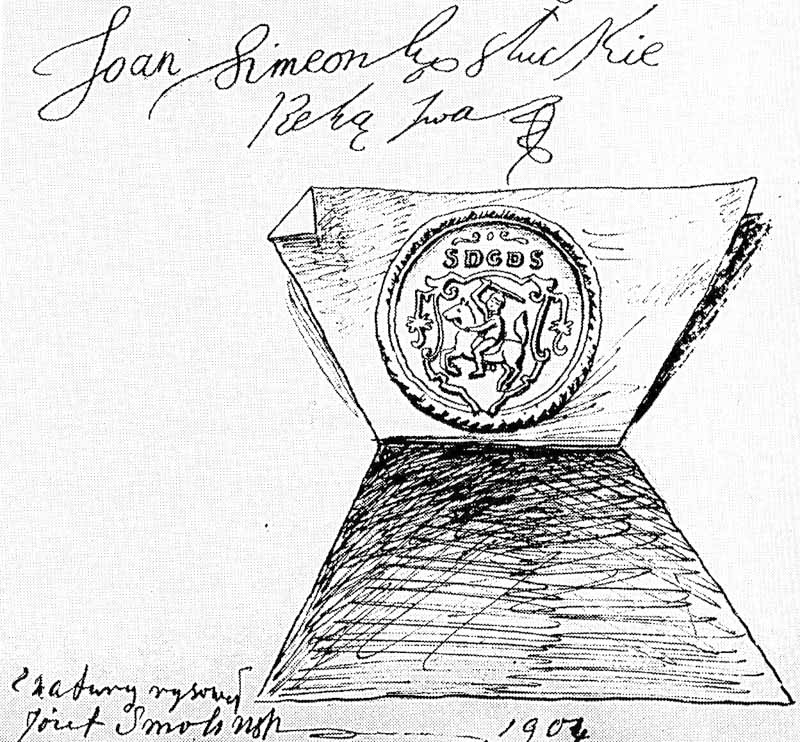 Joan Simeon Xo Słuckie
Ręką swą
SDGDS
Z natury rysował
Józef Smoliński
1904